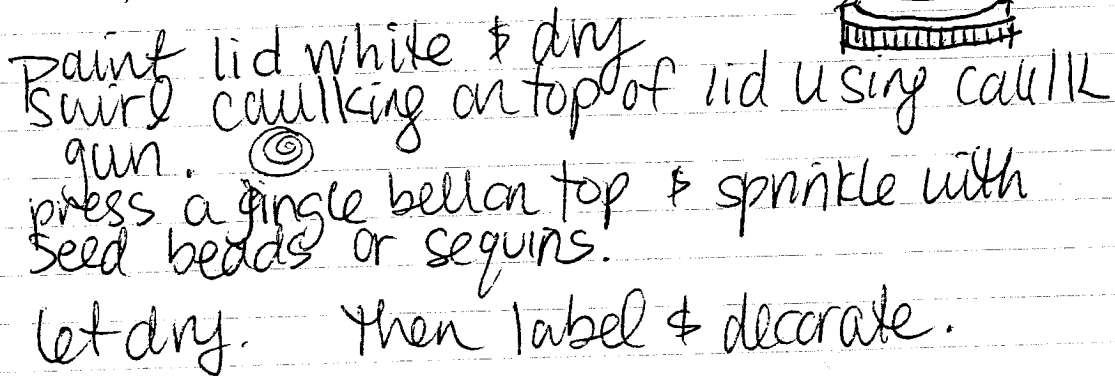 paint lid white & dry
swirl caulking on top of lid using caulk
gun.
press a gingle bell on top & sprinkle with
seed beads or sequins.
let dry. Then label & decorate.